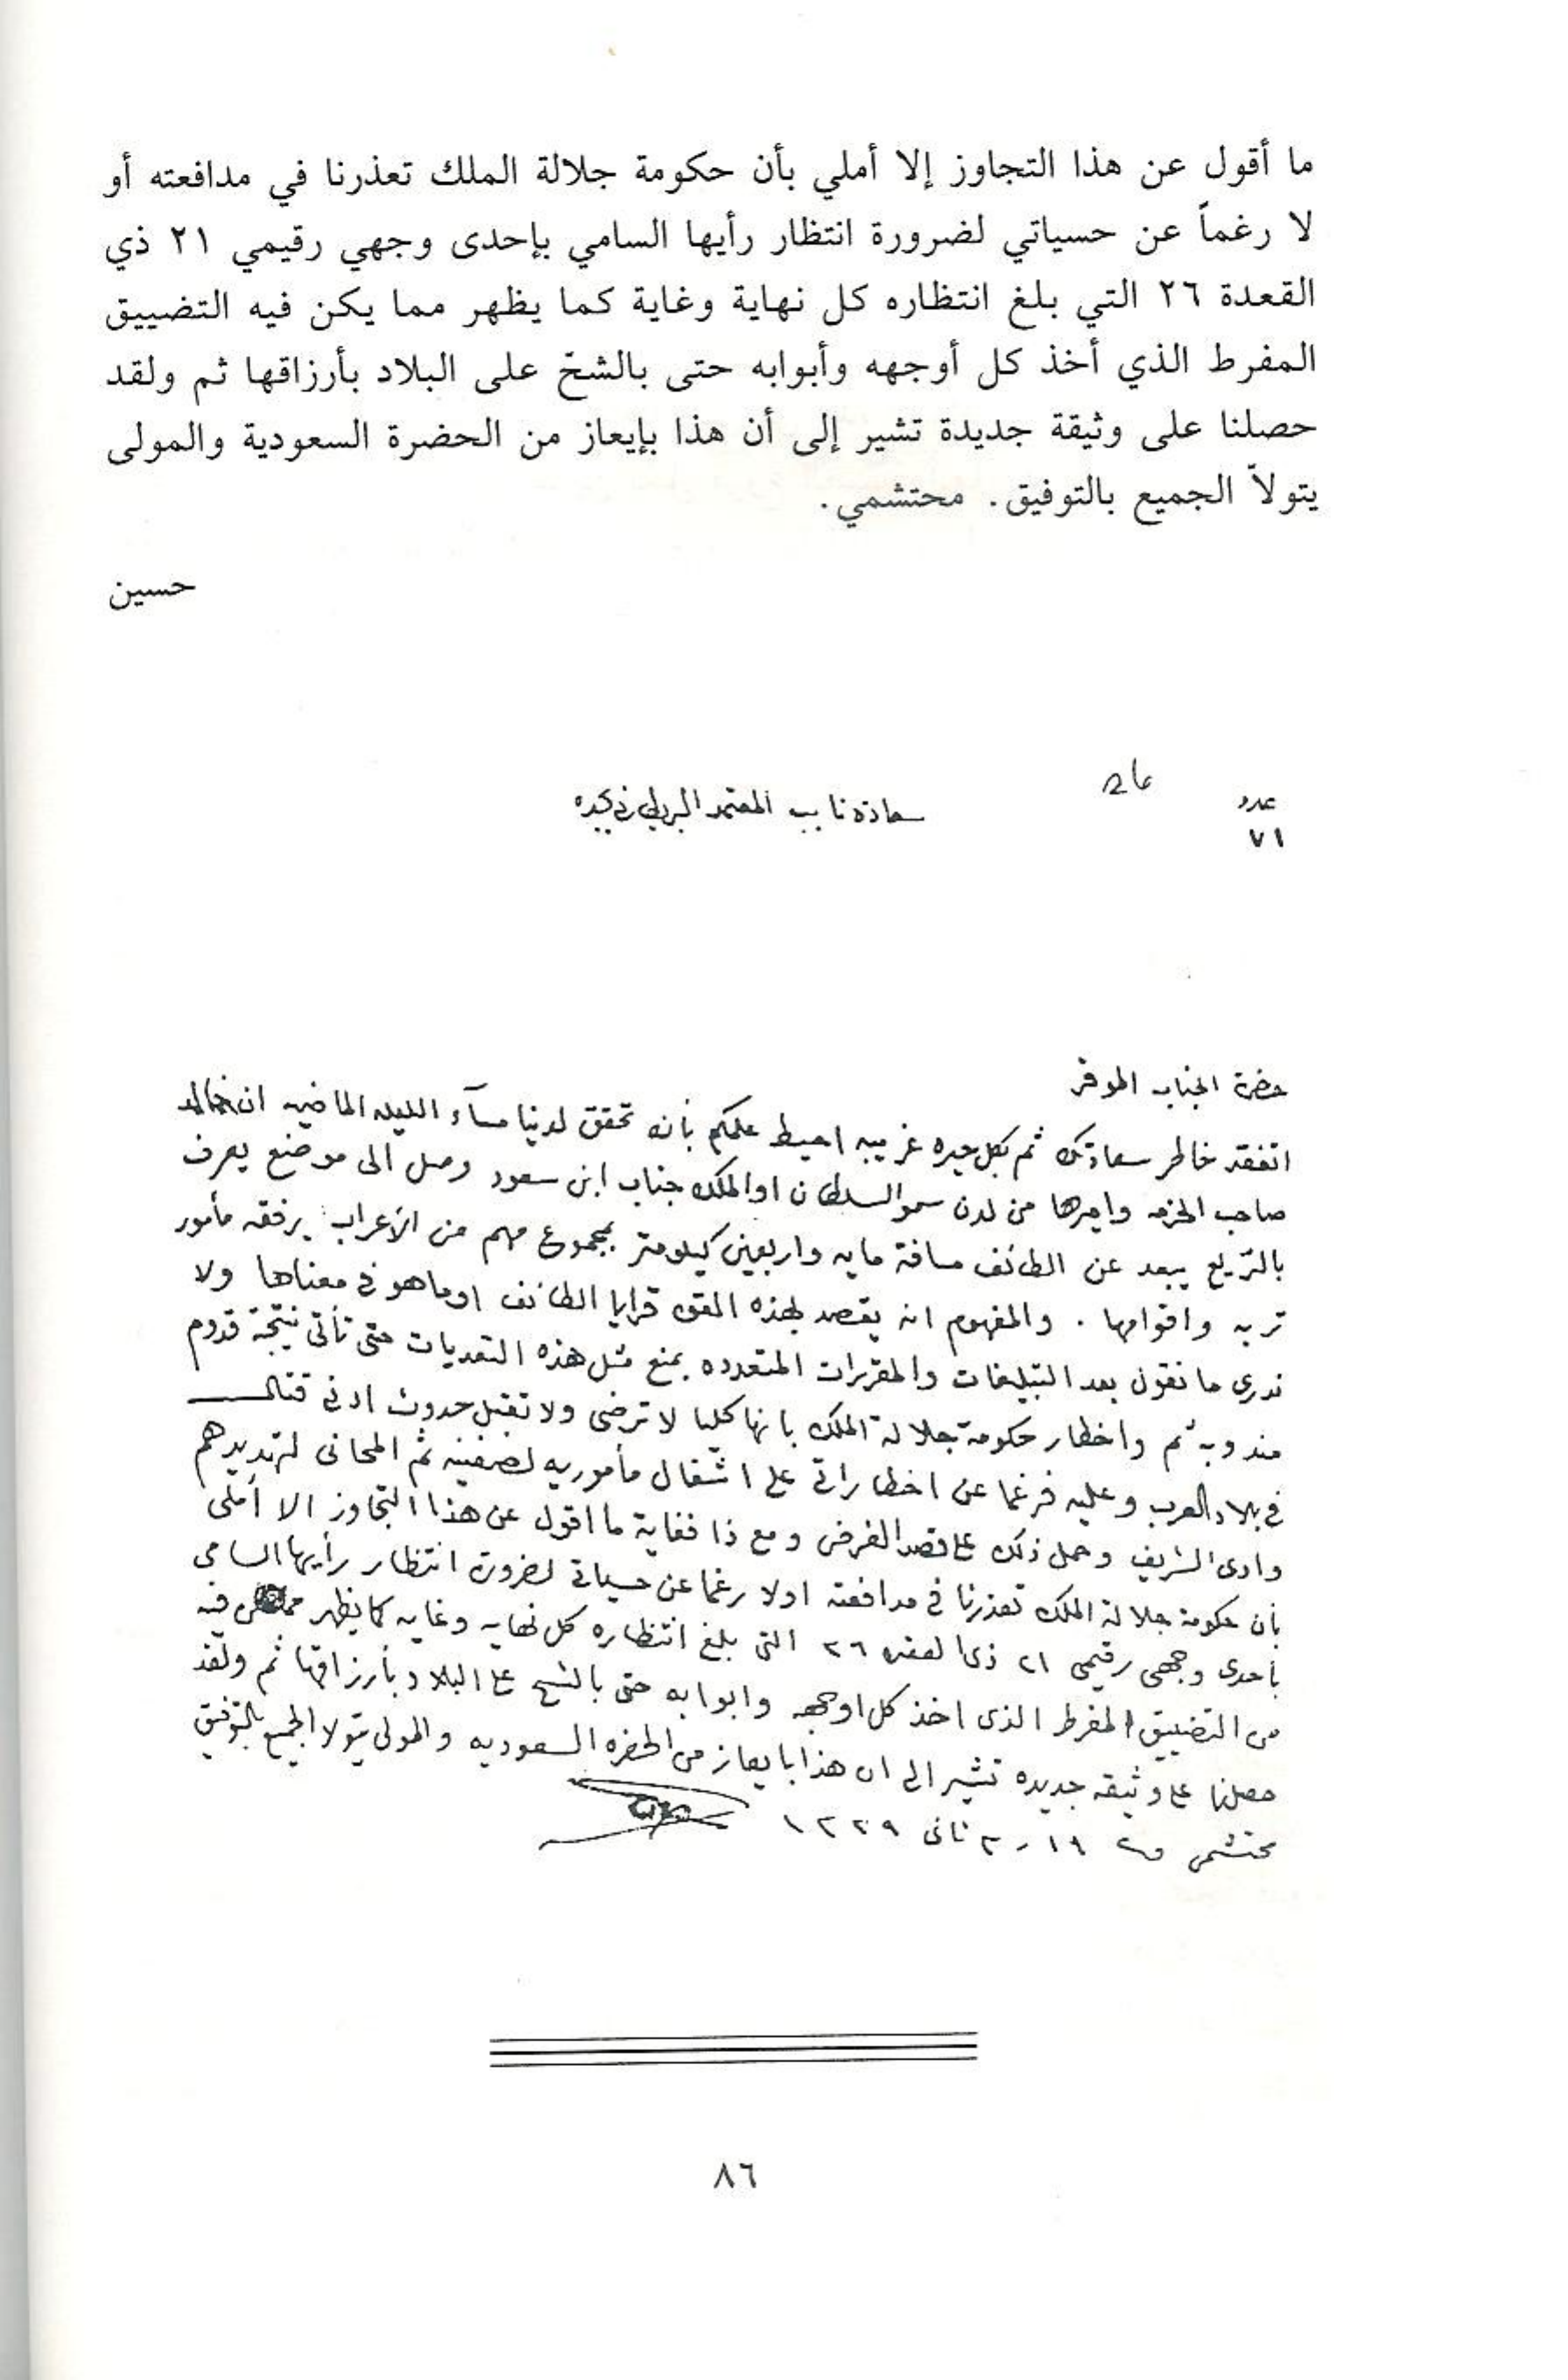 ما أقول عن هذا التجاوز إلا أملي بأن حكومة جلالة الملك تعذرنا في مدافعته أو
لا رغماً عن حسياتي لضرورة انتظار رأيها السامي بإحدى وجهي رقيمي ٢١ ذي
القعدة ٢٦ التي بلغ انتظاره كل نهاية وغاية كما يظهر مما يكن فيه التضييق
المفرط الذي أخذ كل أوجهه وأبوابه حتى بالشحّ على البلاد بأرزاقها ثم ولقد
حصلنا على وثيقة جديدة تشير إلى أن هذا بإيعاز من الحضرة السعودية والمولى
يتولاّ الجميع بالتوفيق. محتشمي.
حسين
عدد
٧١
سعادة نايب المعتمد البريطاني بجده
حضرة الجناب الموقر
اتفقد خاطر سعادتك ثم بكل حيره غريبه احيط علمكم بأنه تحقق لدينا مسآء الليله الماضيه ان خالد
صاحب الخرمه واميرها من لدن سمو السلطان او الملك جناب ابن سعود وصل الى موضع يعرف
يبعد عن الطائف مسافة مايه واربعين كيلومتر بمجموع مهم من الأعراب يرفقه مأمور
تربه واقوامها . والمفهوم انه يقصد بهذه القوه قرايا الطائف او ما هو في معناها ولا
ندرى ما نقول بعد التبليغات والمقررات المتعدده بمنع مثل هذه التعديات حتى تأتى نتيجة قدوم
مندوبه ثم واخطار حكومة جلالة الملك بانها كليا لا ترضى ولا تقبل حدوث ادنى قتال
في بلاد العرب وعليه فرغما عن اخطاراتى على اشغال مأموريه ثم المحانى لتهديدهم
وادى الشريف وحمل ذلك على قصد الغرض ومع ذا فغاية ما اقول عن هذا التجاوز الا أملى
بأن حكومة جلالة الملك تعذرنا في مدافعته اولا رغما عن حسياتى لضرورة انتظار رأيها السامى
بأحدى وجهى رقيمى ٢١ ذى القعده ٢٦ التى بلغ انتظاره كل نهايه وغايه كما يظهر فيه
من التضييق المفرط الذى اخذ كل اوجهه وابوابه حتى بالشح على البلاد بأرزاقها ثم ولقد
حصلنا على وثيقه جديده تشير الى ان هذا بايعاز من الحضره السعوديه والمولى يتولا الجميع بالتوفيق
محتشمى
٨٦